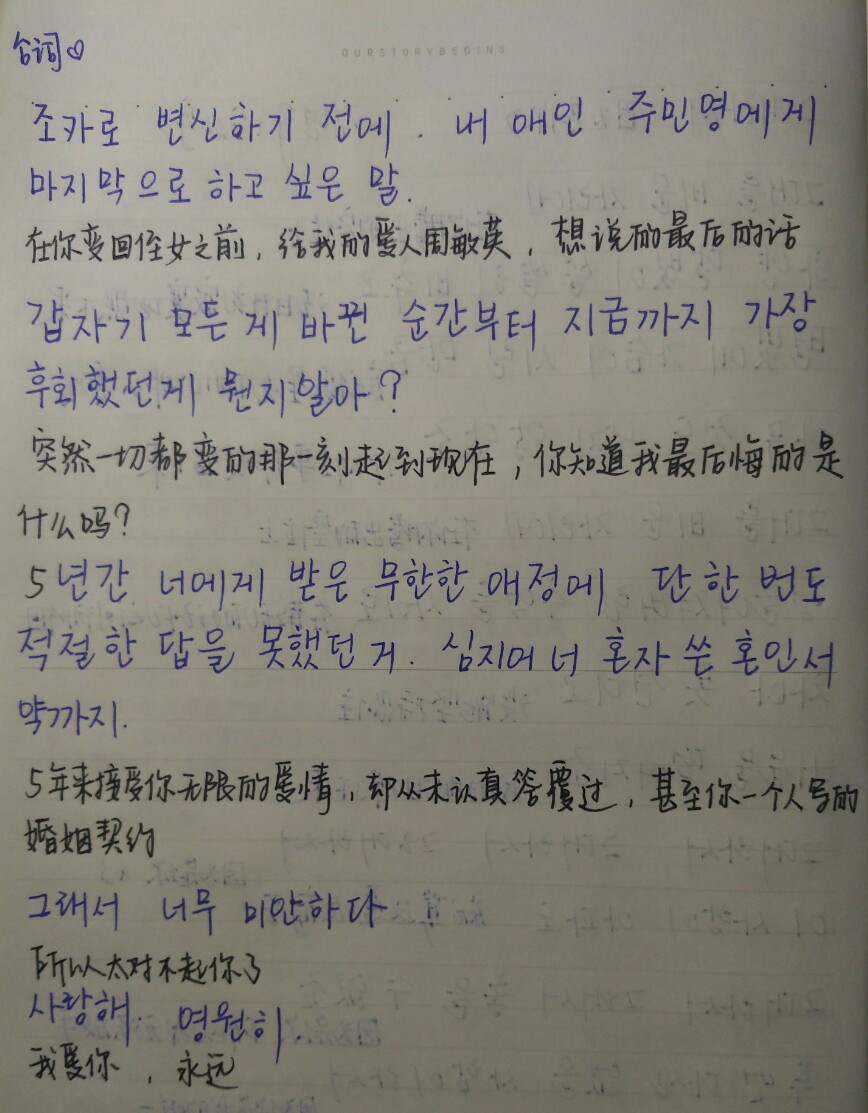 OURSTORYBEGINS
台词♡
조카로 변신하기 전에. 내 애인 주민영에게
마지막으로 하고 싶은 말.
在你变回侄女之前，给我的爱人周敏英，想说的最后的话
갑자기 모든 게 바뀐 순간부터 지금까지 가장
후회했던게 뭔지알아?
突然一切都变的那一刻起到现在，你知道我最后悔的是
什么吗?
5년간 너에게 받은 무한한 애정에. 단 한 번도
적절한 답을 못했던 거. 심지어 너 혼자 쓴 혼인서
약까지.
5年来接受你无限的爱情，却从未认真答覆过，甚至你一个人写的
婚姻契约
그래서 너무 미안하다
所以太对不起你了
사랑해. 영원히.
我爱你，永远